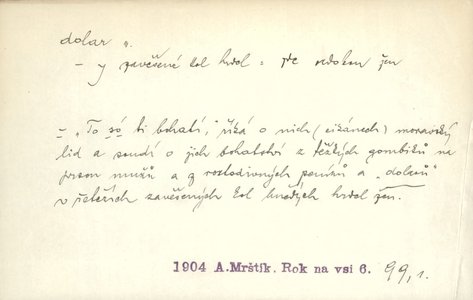 dolar „.
– y zavěšené kol hrdel
– „To só ti boháti,“ říká o nich (cikánech) moravský
lid a soudí o jich bohatství z těžkých gombíků na
prsou mužů a z rostodivných penízů a „dolarů“
v řetězích zavěšených kol hnědých hrdel žen.
1904 A.Mrštík. Rok na vsi 6. 99, 1.